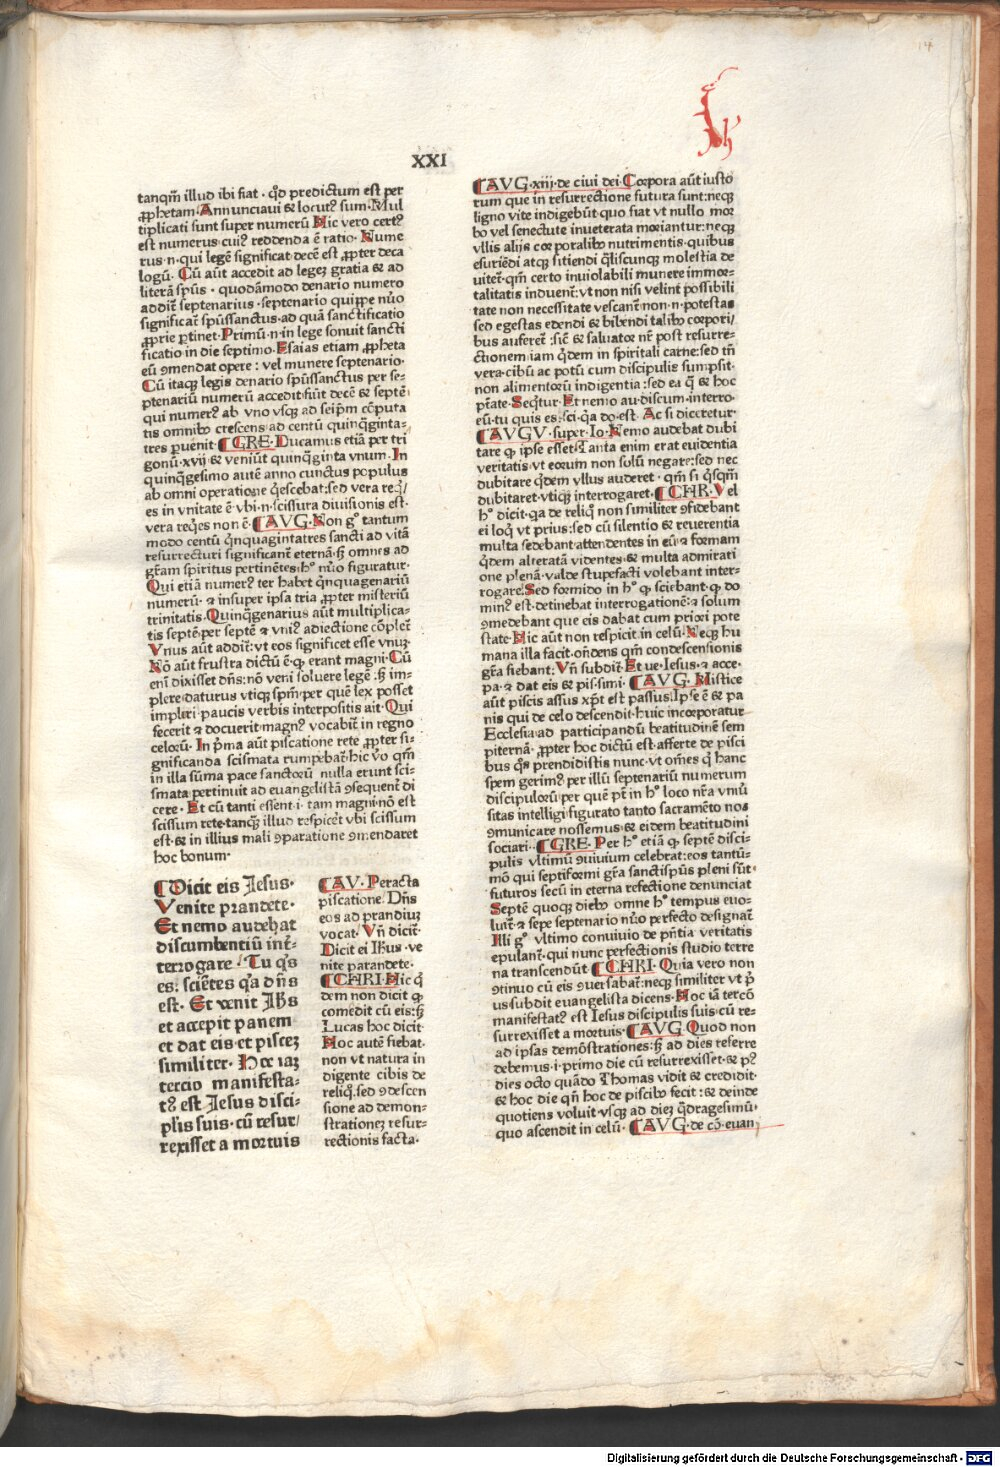 XXI
tanqm̄ illud ibi fiat · qđ predictum est per
ꝓphetam· Annunciaui & locutꝰ sum· Mul
tiplicati sunt super numerū Hic vero certꝰ
est numerus·cuiꝰ reddenda ē ratio· Nume
rus·n·qui legē significat decē est ꝓpter deca
logū· Cū aūt accedit ad legeȝ gratia & ad
literā spūs · quodāmodo denario numero
addit̄ septenarius·septenario quippe nūo
significat̄ spūssanctus·ad quā sanctificatio
ꝓprie ꝑtinet· Primū·n·in lege sonuit sancti
ficatio in die septimo· Esaias etiam ꝓpheta
eū ꝯmendat opere : vel munere septenario·
Cū itaqꝫ legis denario spūssanctus per se-
ptenariū numerū accedit·fiūt decē & septē
qui numerꝰ ab vno vsqꝫ ad seipm̄ cōputa
tis omnibꝰ crescens ad centū quinq̄ginta-
tres ꝑuenit· GRE· Ducamus etiā per tri
gonū·xvij & veniūt quinq̄ginta vnum· In
quinq̄gesimo autē anno cunctus populus
ab omni operatione q̄escebat:sed vera req̄/
es in vnitate ē vbi·n·scissura diuisionis est·
vera req̄es non ē· AVG· Non gͦ tantum
modo centū q̄nquagintatres sancti ad vitā
resurrecturi significant̄ eternā·s̄ omnes ad
gr̄am spiritus pertinētes·hͦ nūo figuratur·
Qui etiā numerꝰ ter habet q̄nquagenariū
numerū· ⁊ insuper ipsa tria ꝓpter misteriū
trinitatis· Quinq̄genarius aūt multiplica-
tis septē·per septē ⁊ vniꝰ adiectione cōplet̄
Vnus aūt addit̄:vt eos significet esse vnuȝ·
Nō aūt frustra dictū ē·ꝙ erant magni· Cū
eni dixisset dn̄s:nō veni soluere legē:s̄ im-
plere·daturus vtiqꝫ spm̄·per quē lex posset
impleri·paucis verbis interpositis ait· Qui
fecerit & docuerit·magnꝰ vocabit̄ in regno
celorū· In p̄ma aūt piscatione rete ꝓpter si-
gnificanda scismata rumpebat̄·hic v̄o qm̄
in illa sūma pace sanctorū nulla erunt sci-
smata·pertinuit ad euangelistā ꝯsequent̄ di
cere· Et cū tanti essent·i·tam magni·nō est
scissum rete·tanqꝫ illud respicer̄ vbi scissum
est·& in illius mali ꝯparatione ꝯmendaret
hoc bonum·
Dicit eis Jesus·
Venite prandete·
Et nemo audebat
discumbentiū int̄-
terrogare· Tu q̄s
es: sciētes q̄a dn̄s
est· Et venit Jhs
et accepit panem
et dat eis·et pisceȝ
similiter· Hoc iaȝ
tercio manifesta-
tꝰ est Jesus disci-
plis suis·cū resur/
rexisset a mortuis
AV· Peracta
piscatione Dn̄s
eos ad prandiuȝ
vocat· Vn̄ dicit̄·
Dicit ei Ihus·ve
nite parandete·
CHRI· Hic q̄
dem non dicit ꝙ
comedit cū eis:s̄
Lucas hoc dicit
Hoc autē fiebat·
non vt natura in
digente cibis de
reliq̄·sed ꝯdescen
sione ad demon-
strationeȝ resur-
rectionis facta·
AVG·xiij·de ciui dei· Corpora aūt iusto
rum que in resurrectione futura sunt:neqꝫ
ligno vite indigebūt quo fiat vt nullo mor
bo vel senectute inueterata moriantur:neqꝫ
vllis alijs corporalibꝰ nutrimentis·quibus
esuriēdi atqꝫ sitiendi q̄liscunqꝫ molestia de
uitet̄·qm̄ certo inuiolabili munere immor-
talitatis induent̄:vt non nisi velint possibili
tate non necessitate vescant̄ non·n·potestas
sed egestas edendi & bibendi talibꝰ corpori/
bus auferet̄ :sic̄ & saluator nr̄ post resurre-
ctionem iam q̄dem in spiritali carne:sed tn̄
vera·cibū ac potū cum discipulis sumpsit·
non alimentorū indigentia :sed ea q̄ & hoc
pt̄ate· Seq̄tur· Et nemo au·discum·interro·
eū·tu quis es:sci·q̄a do·est· Ac si diceretur
AVGV·super·Io· Nemo audebat dubi
tare ꝙ ipse esset· Tanta enim erat euidentia
veritatis·vt eorum non solū negare:sed nec
dubitare q̄dem vllus auderet · qm̄ si q̄sqm̄
dubitaret·vtiqꝫ interrogaret· CHR· Vel
hͦ dicit·q̄a de reliq̄ non similiter ꝯfidebant
ei loq̄ vt prius:sed cū silentio & reuerentia
multa sedebant·attendentes in eū:⁊ formam
q̄dem alteratā videntes·& multa admirati
one plenā·valde stupefacti volebant inter-
rogare: Sed formido in hͦ ꝙ sciebant·ꝙ do
minꝰ est·detinebat interrogationē:⁊ solum
ꝯmedebant que eis dabat cum priori pote
state· Hic aūt non respicit in celū· Neqꝫ hu
mana illa facit·on̄dens qm̄ condescensionis
gr̄a fiebant: Vn̄ subdit̄· Et ue·Iesus·⁊ acce·
pa·⁊ dat eis·& pis·simi· AVG· Mistice
aūt piscis assus xp̄t est passus: Ipse ē & pa
nis qui de celo descendit·huic incorporatur
Ecclesia·ad participandū beatitudinē sem
piternā· ꝓpter hoc dictū est·afferte de pisci
bus q̄s prendidistis nunc·vt om̄es q̄ hanc
spem gerimꝰ per illū septenariū numerum
discipulorū·per quē pt̄ in hͦ loco nr̄a vniuꝰ
sitas intelligi figurato·tanto sacramēto nos
ꝯmunicare nossemus·& eidem beatitudini
sociari·· GRE· Per hͦ etiā ꝙ septē disci-
pulis vltimū ꝯuiuium celebrat:eos tantū-
mō qui septiformi gr̄a sanctispūs pleni sūt·
futuros secū in eterna refectione denunciat
Septē quoqꝫ diebꝰ omne hͦ tempus euo-
luit̄·⁊ sepe septenario nūo perfecto designat̄
Illi gͦ vltimo conuiuio de pn̄tia veritatis
epulant̄·qui nunc perfectionis studio terre
na transcendūt CHRI· Quia vero non
ꝯtinuo cū eis ꝯuersabat̄:neqꝫ similiter vt p̄
us·subdit euangelista dicens· Hoc iā tercō
manifestatꝰ est Iesus discipulis suis·cū re-
surrexisset a mortuis· AVG· Quod non
ad ipsas demōstrationes:s̄ ad dies referre
debemus·i·primo die cū resurrexisset·& pꝰ
dies octo quādo Thomas vidit & credidit·
& hoc die qn̄ hoc de piscibꝰ fecit :& deinde
quotiens voluit·vsqꝫ ad dieȝ q̄dragesimū·
quo ascendit in celū· AVG·de cō·euan
Digitalisierung gefördert durch die Deutsche Forschungsgemeinschaft - DFG